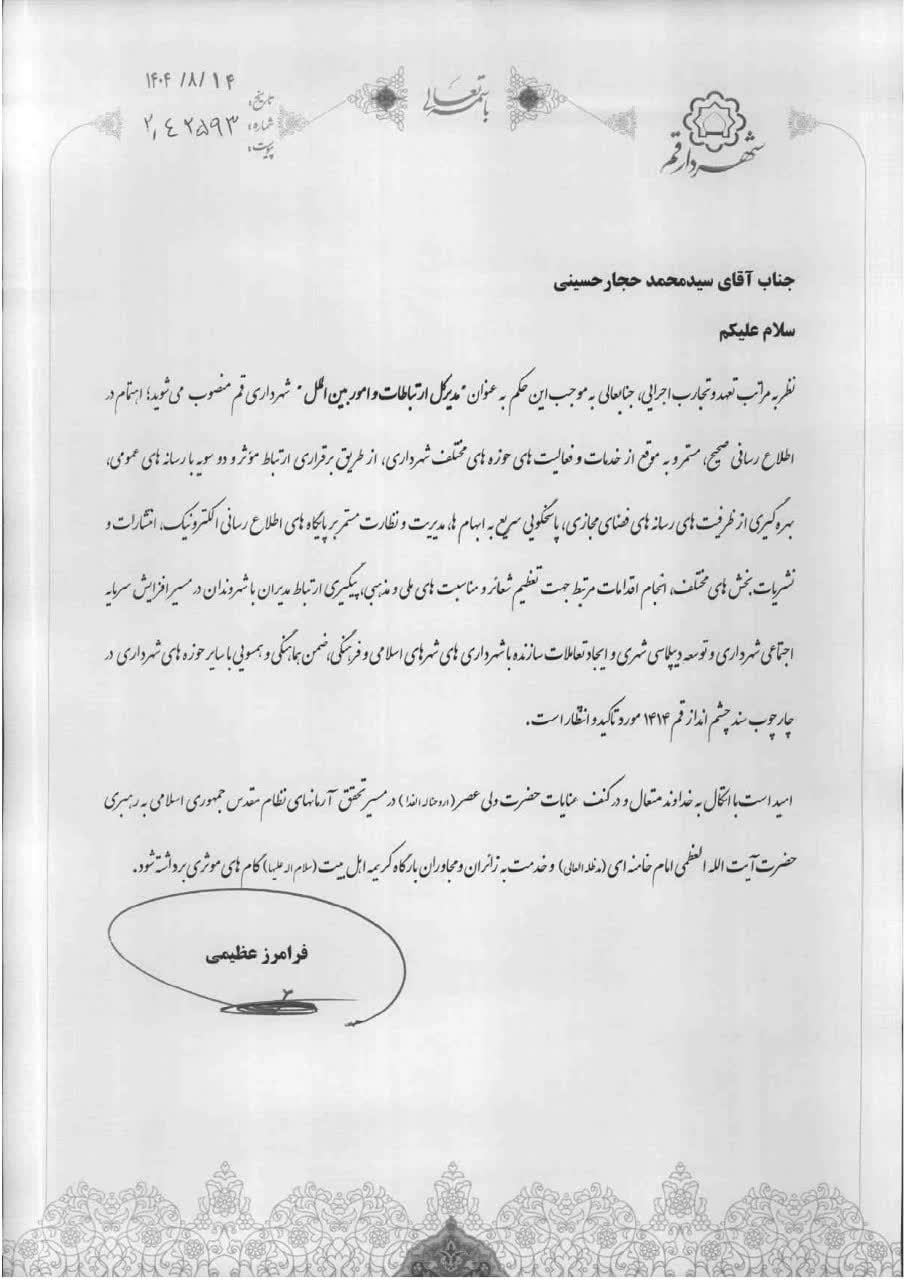 باسمه تعالی
شهردار قم
تاریخ: ۱۴۰۴/۸/۱۴
شماره:
پیوست:
جناب آقای سیدمحمد حجارحسینی
سلام علیکم
نظر به مراتب تعهد و تجارب اجرایی، جنابعالی به موجب این حکم به عنوان "مدیرکل ارتباطات و امور بین الملل" شهرداری قم منصوب می شوید؛ اهتمام در
اطلاع رسانی صحیح، مستمر و به موقع از خدمات و فعالیت های حوزه های مختلف شهرداری، از طریق برقراری ارتباط مؤثر و دو سویه با رسانه های عمومی،
بهره گیری از ظرفیت های رسانه های فضای مجازی، پاسخگویی سریع به ابهام ها، مدیریت و نظارت مستمر بر پایگاه های اطلاع رسانی الکترونیک، انتشارات و
نشریات بخش های مختلف، انجام اقدامات مرتبط جهت تعظیم شعائر و مناسبت های ملی و مذهبی، پیگیری ارتباط مدیران با شهروندان در مسیر افزایش سرمایه
اجتماعی شهرداری و توسعه دیپلماسی شهری و ایجاد تعاملات سازنده با شهرداری های شهرهای اسلامی و فرهنگی، ضمن هماهنگی و همسویی با سایر حوزه های شهرداری در
چارچوب سند چشم انداز قم ۱۴۱۴ مورد تاکید و انتظار است.
امید است با اتکال به خداوند متعال و در کنف عنایات حضرت ولی عصر (ارواحناله الفدا) در مسیر تحقق آرمانهای نظام مقدس جمهوری اسلامی به رهبری
حضرت آیت الله العظمی امام خامنه ای (مدظله العالی) و خدمت به زائران و مجاوران بارگاه کریمه اهل بیت (سلام اله علیها) گام های موثری برداشته شود.
فرامرز عظیمی